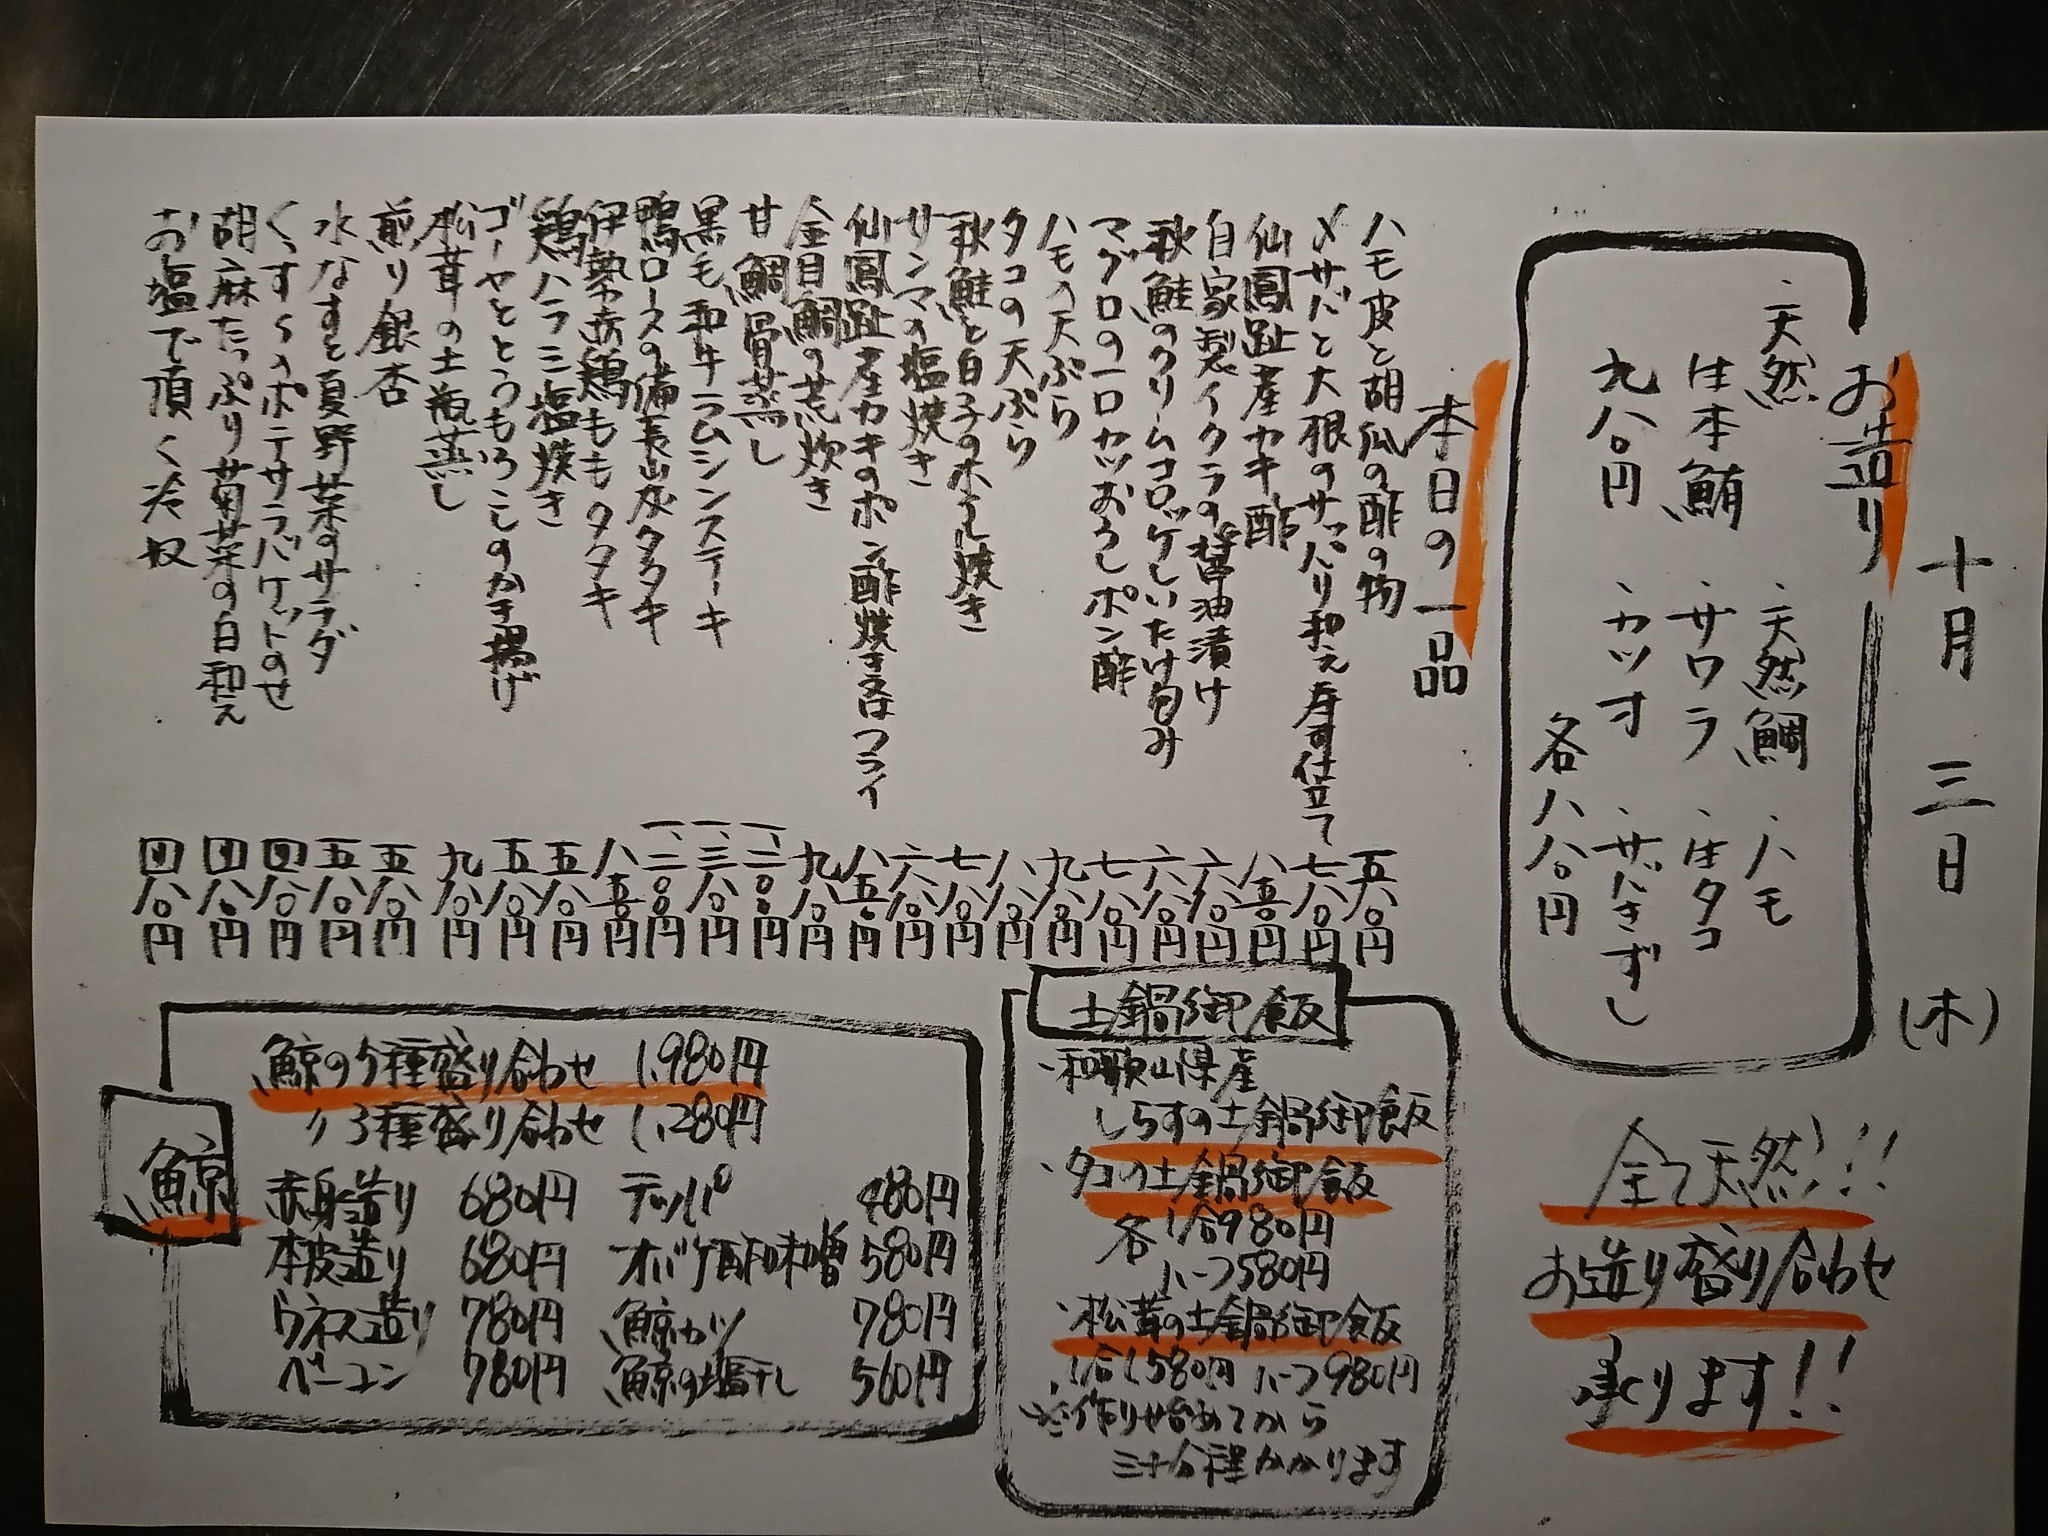 十月三日(木)
お造り
・天然生本鮪 九八〇円
・天然鯛
・サワラ
・カツオ
・ハモ
・生タコ
・サバきずし
各八八〇円
全て天然!!
お造り盛り合わせ
承ります!!
本日の一品
ハモ皮と胡瓜の酢の物 五八〇円
〆サバと大根のサッパリ和え寿司仕立て 七八〇円
仙鳳趾産カキ酢 八五〇円
自家製イクラの醤油漬け 六八〇円
秋鮭のクリームコロッケしいたけ包み 六八〇円
マグロの一口カツおろしポン酢 七八〇円
ハモの天ぷら 九八〇円
タコの天ぷら 八八〇円
秋鮭と白子のホイル焼き 七八〇円
サンマの塩焼き 六八〇円
仙鳳趾産カキのポン酢焼き又はフライ 八五〇円
金目鯛の荒炊き 九八〇円
甘鯛骨蒸し 一、二〇〇円
黒毛和牛ラムシンステーキ 一、三八〇円
鴨ロースの備長炭タタキ 一、二〇〇円
伊勢赤鶏ももタタキ 八五〇円
鶏ハラミ塩焼き 五八〇円
ゴーヤととうもろこしのかき揚げ 五八〇円
松茸の土瓶蒸し 九八〇円
煎り銀杏 五八〇円
水なすと夏野菜のサラダ 五八〇円
くずし〜のポテサラバケットのせ 四八〇円
胡麻たっぷり菊菜の白和え 四八〇円
お塩で頂く冷奴 四八〇円
土鍋御飯
・和歌山県産
しらすの土鍋御飯
・タコの土鍋御飯
各 1合980円
ハーフ580円
・松茸の土鍋御飯
1合1,580円 ハーフ980円
※作り始めてから
三十分程かかります
鯨
鯨の5種盛り合わせ 1,980円
〃 3種盛り合わせ 1,280円
赤身造り 680円 テッパ 480円
本皮造り 680円 オバケ酢味噌 580円
ウネス造り 780円 鯨カツ 780円
ベーコン 780円 鯨の塩干し 560円